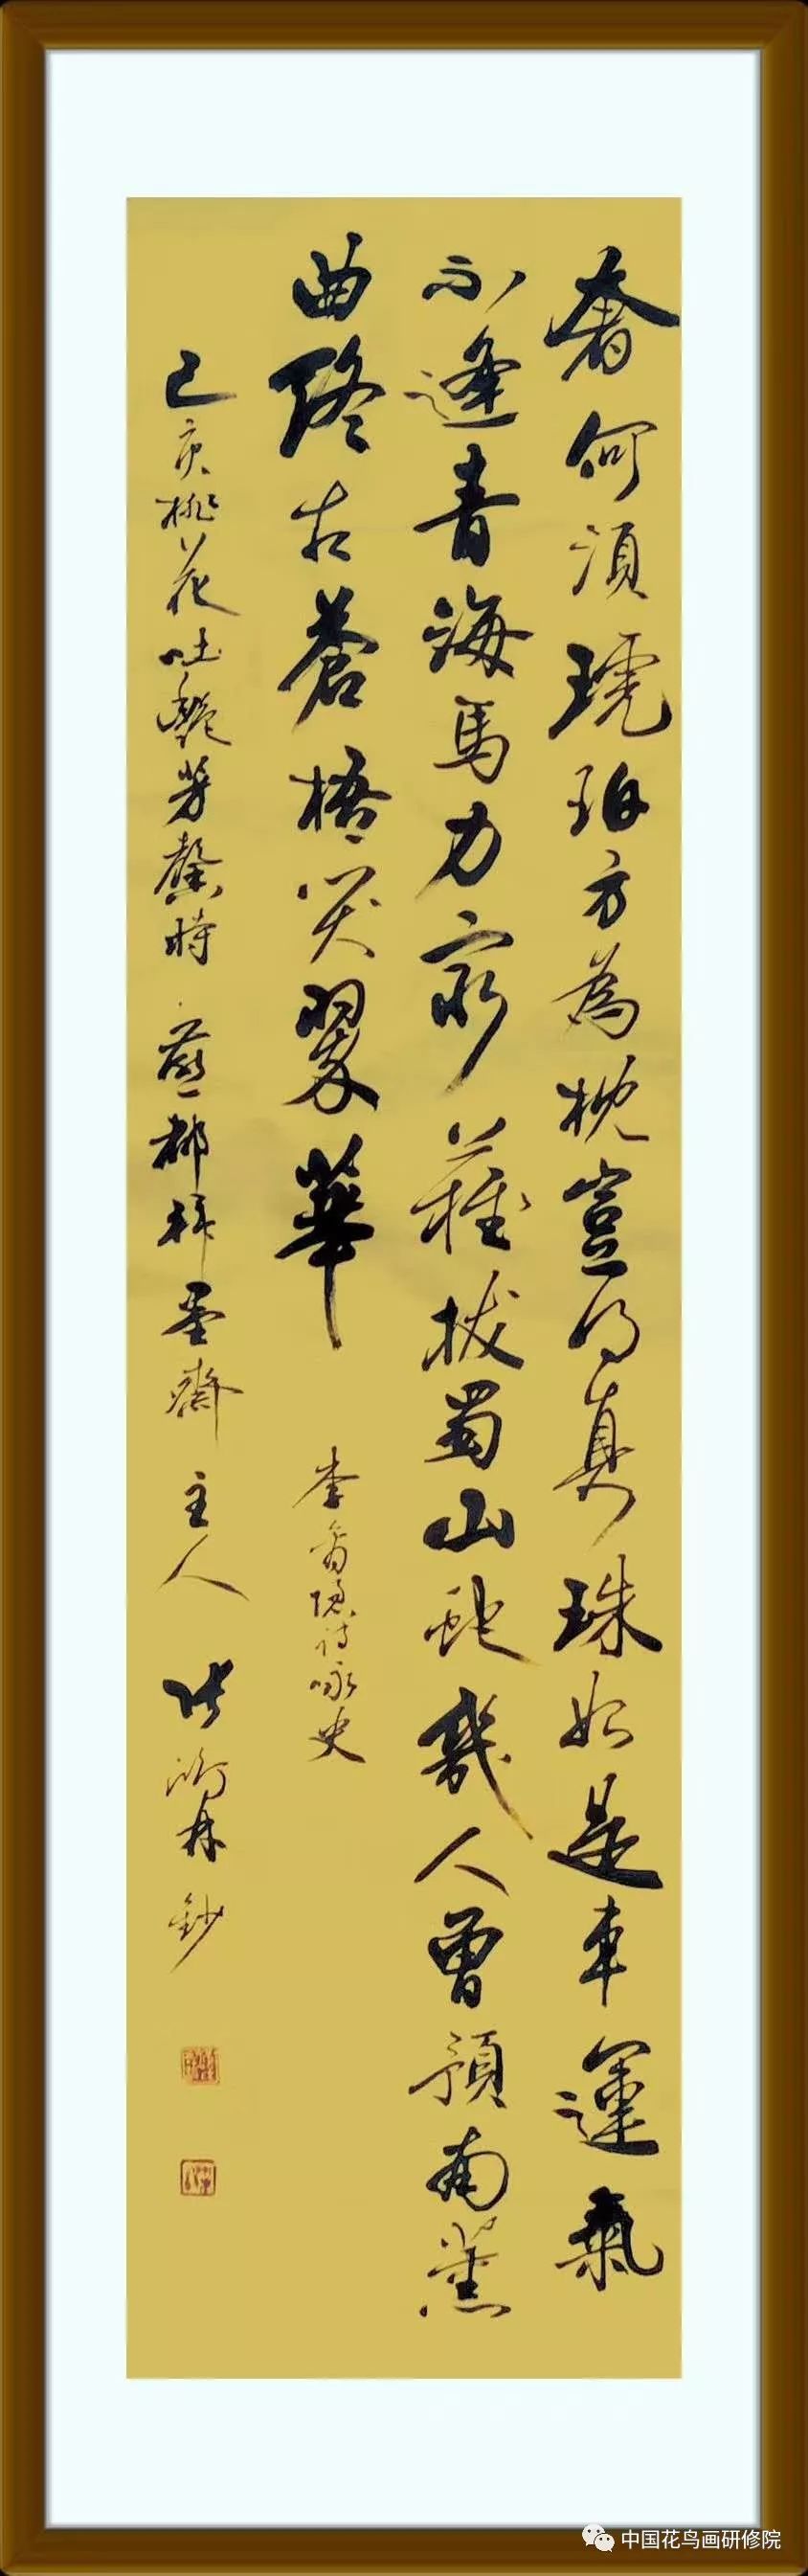 奢何須琥珀方為枕豈得真珠始是車運氣
不逢青海馬力窮難拔蜀山蛇幾人曾預南薰
曲終古蒼梧哭翠華
李商隱詩咏史
己亥桃花吐艷芳馨時 燕都墨齋 主人 張林鈔
中国花鸟画研修院